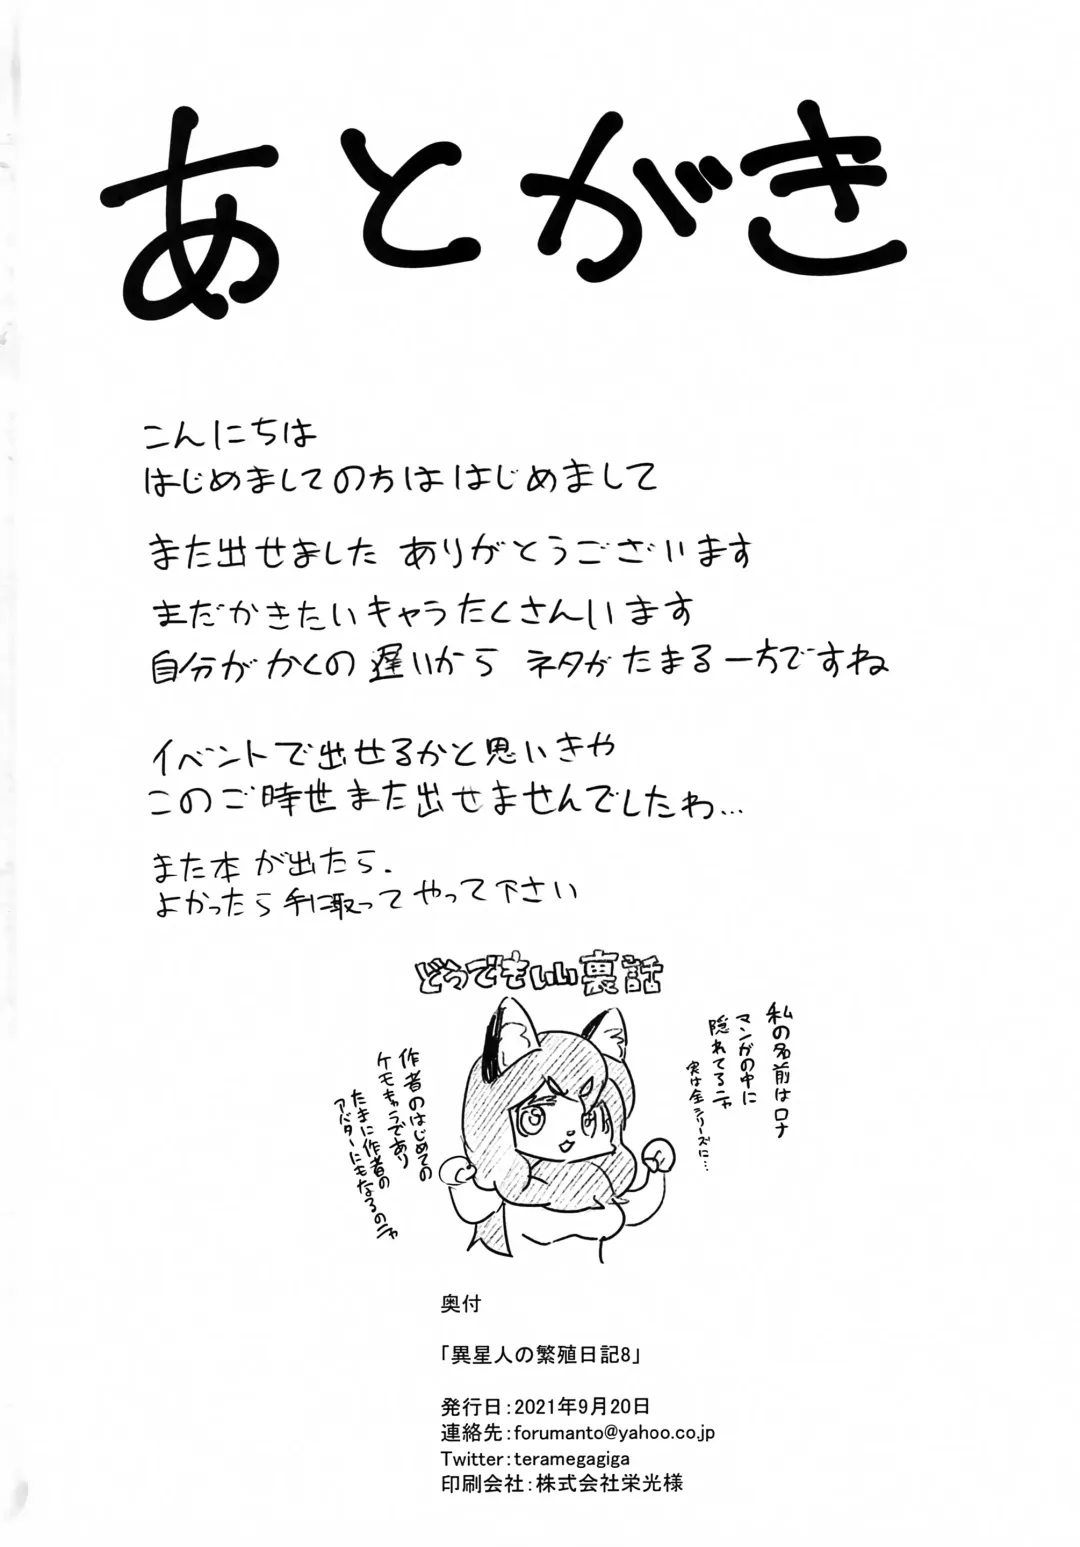 あとがき
こんにちは
はじめましての方は はじめまして
また出せました ありがとうございます
まだかきたいキャラたくさんいます
自分がかくの遅いから ネタがたまる一方ですね
イベントで出せるかと思いきや
このご時世また出せませんでしたわ…
また本が出たら、
よかったら手に取ってやって下さい
どうでもいい裏話
私の名前はロナ
マンガの中に
隠れてるニャ
実は全シリーズに…
作者のはじめての
ケモキャラであり
たまに作者の
アバターにもなるのニャ
奥付
「異星人の繁殖日記8」
発行日：2021年9月20日
連絡先：forumanto@yahoo.co.jp
Twitter：teramegagiga
印刷会社：株式会社栄光様